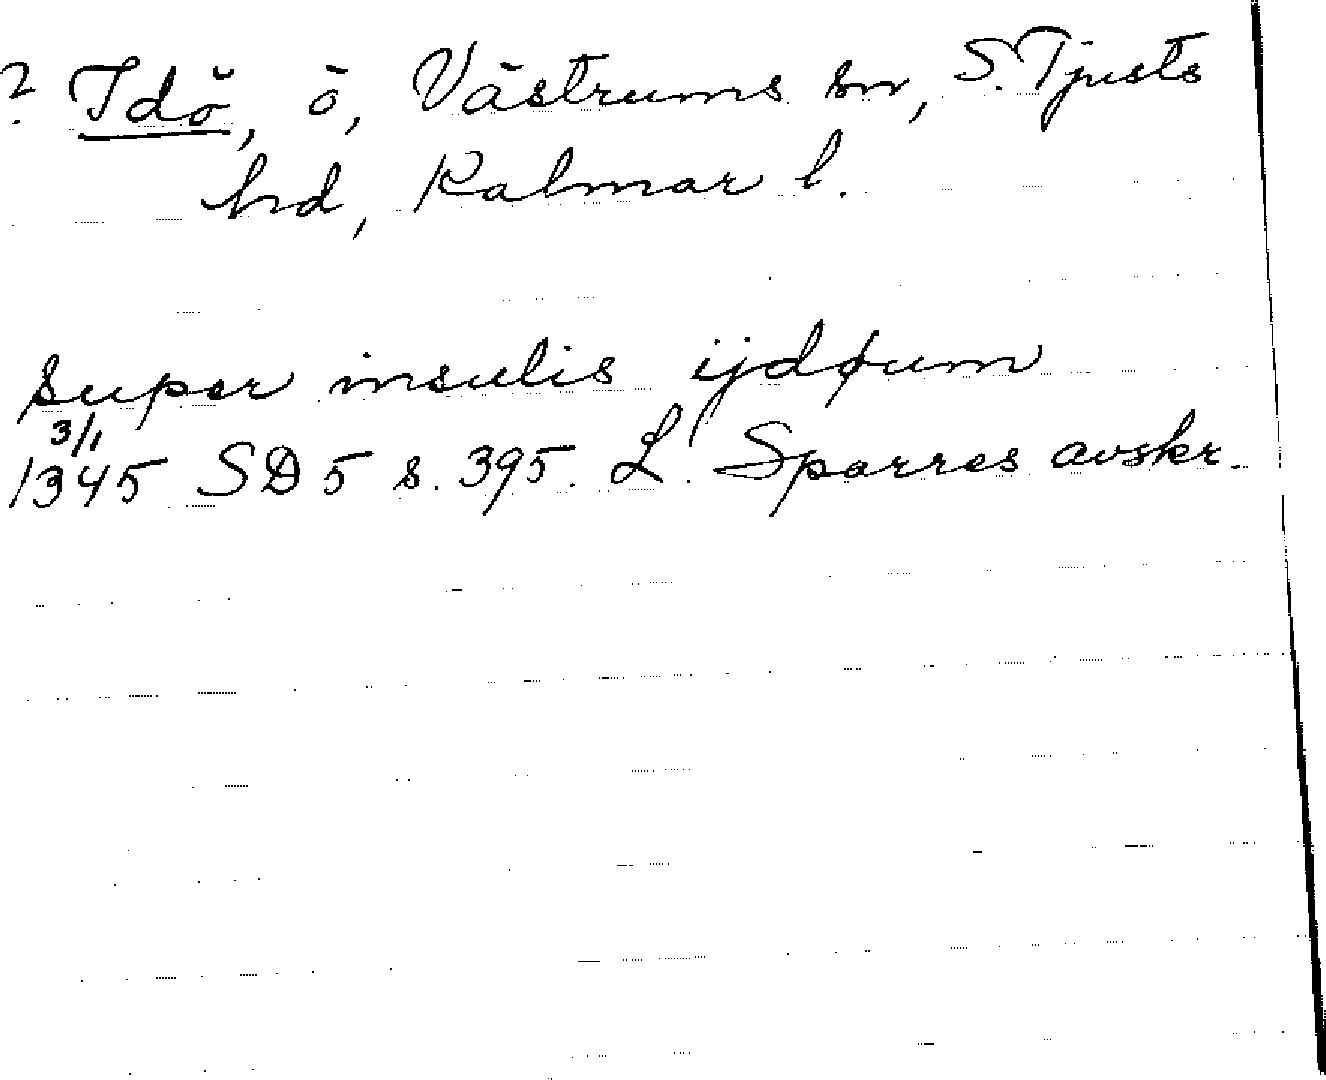 ? Idö, ö, Västrums sn, S. Tjusts
hd, Kalmar l.
super insulis ijdøum
3/1
1345 SD 5 s. 395. L. Sparres avskr.